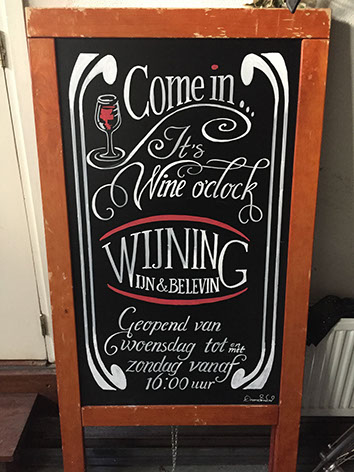 Come in...
It's
Wine o'clock
WIJNING
IJN & BELEVIN
Geopend van
woensdag tot en met
zondag vanaf
16:00 uur